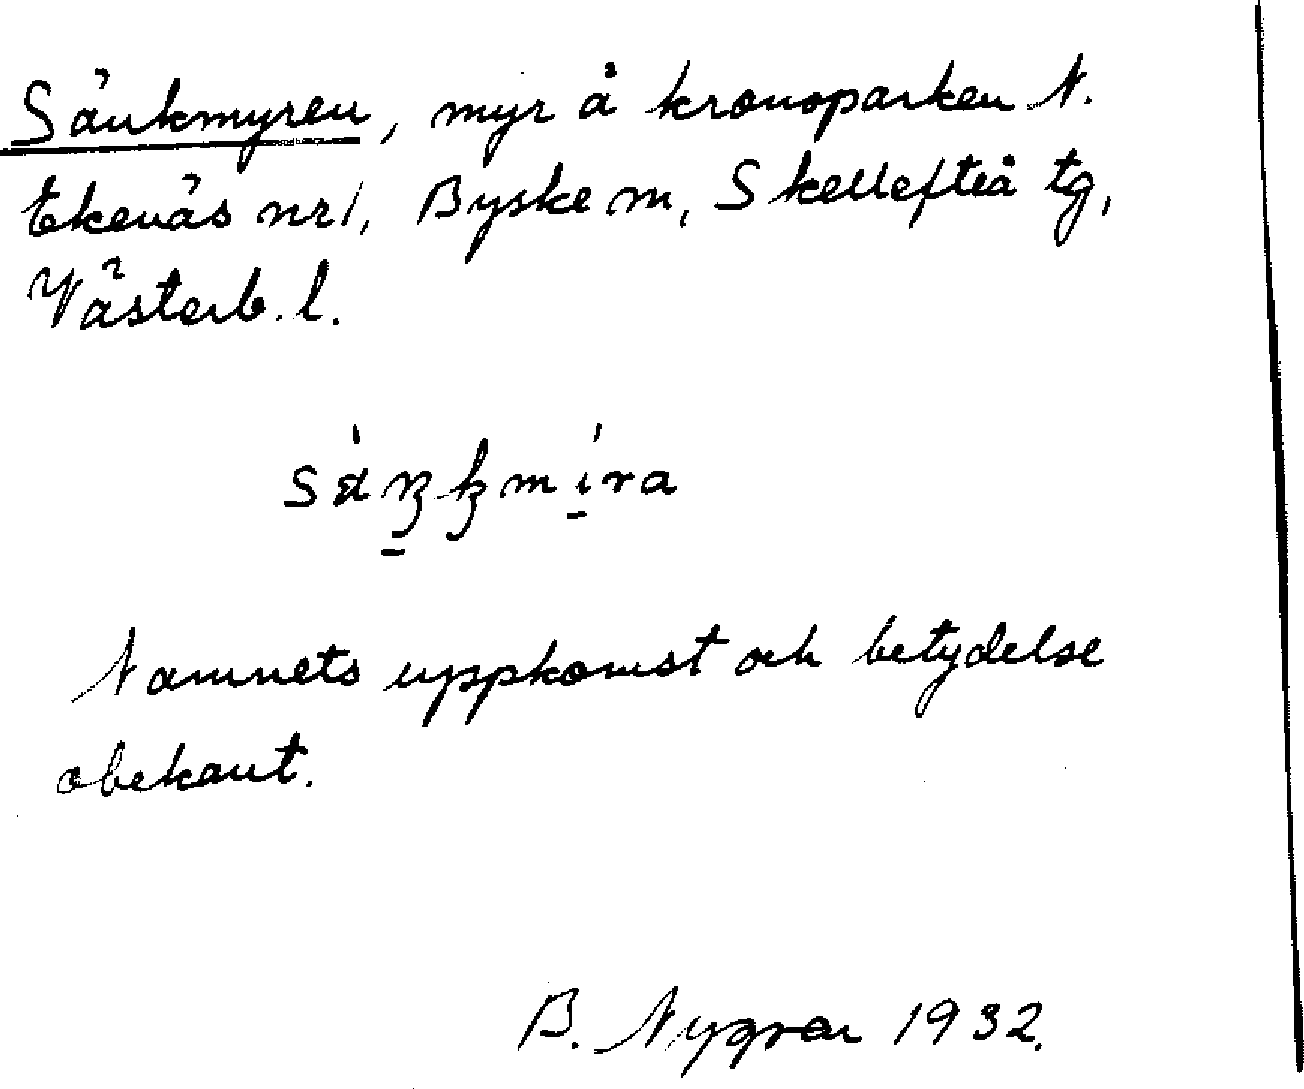 Sänkmyren, myr å kronoparken N.
Ekenäs nr 1, Byske sn, Skellefteå tg,
Västerb. l.
Namnets uppkomst och betydelse
obekant.
B. Nygren 1932.